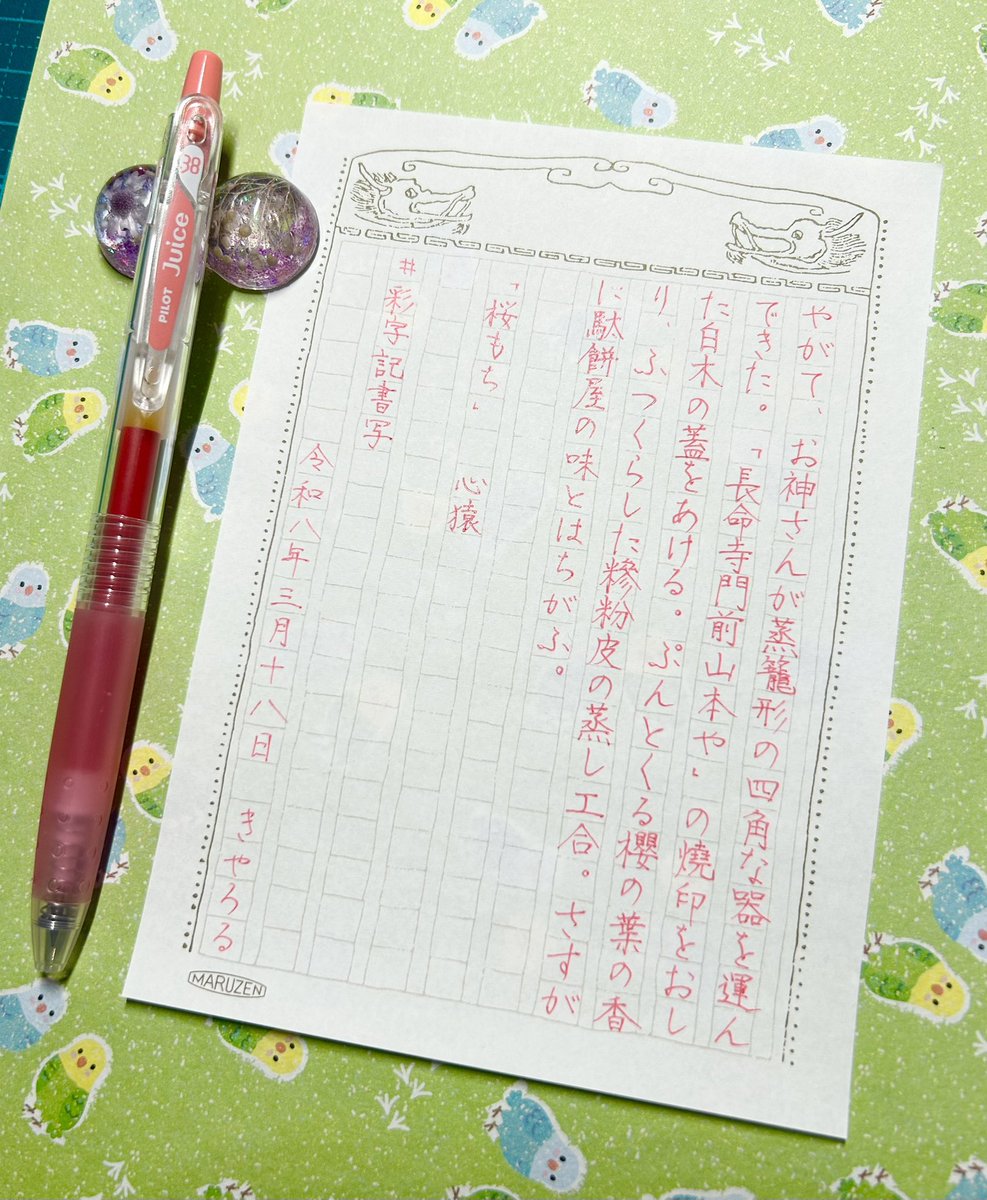 やがて、お神さんが蒸籠形の四角な器を運ん
できた。「長命寺門前山本や」の燒印をおし
た白木の蓋をあける。ぷんとくる櫻の葉の香
り、ふつくらした糝粉皮の蒸し工合。さすが
に駄餅屋の味とはちがふ。
「桜もち」 心猿
#彩字記書写
令和八年三月十八日 きやろる
MARUZEN
PILOT Juice 38